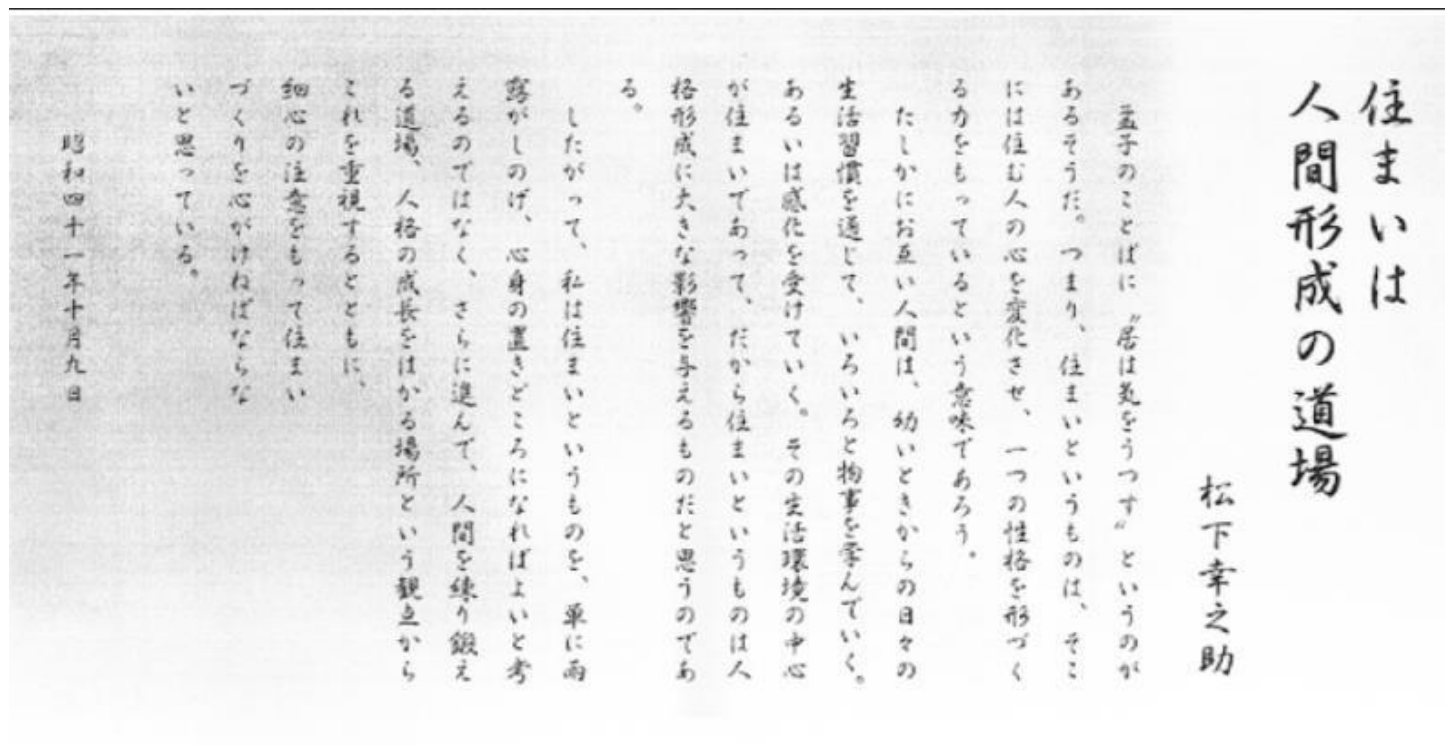 住まいは
人間形成の道場
松下幸之助
孟子のことばに〝居は気をうつす〟というのが
あるそうだ。つまり、住まいというものは、そこ
には住む人の心を変化させ、一つの性格を形づく
る力をもっているという意味であろう。
たしかにお互い人間は、幼いときからの日々の
生活習慣を通じて、いろいろと物事を学んでいく。
あるいは感化を受けていく。その生活環境の中心
が住まいであって、だから住まいというものは人
格形成に大きな影響を与えるものだと思うのであ
る。
したがって、私は住まいというものを、単に雨
露がしのげ、心身の置きどころになればよいと考
えるのではなく、さらに進んで、人間を練り鍛え
る道場、人格の成長をはかる場所という観点から
これを重視するとともに、
細心の注意をもって住まい
づくりを心がけねばならな
いと思っている。
昭和四十一年十月九日